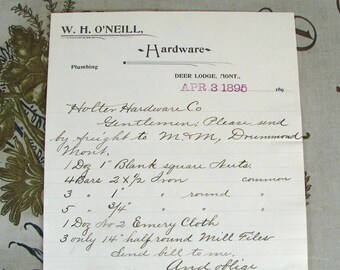 W. H. O'NEILL,
Hardware
Plumbing
DEER LODGE, MONT., APR 3 1895 189
Holter Hardware Co
Gentlemen, Please send
by freight to M & M, Drummond
Mont.
1 Doz 1" Blank square Nuts
4 Bars 2 x 1/2 Iron common
3 " 1" " round "
5 " 3/4" " " "
1 Doz No 2 Emery Cloth
3 only 14" half round Mill Files
Send bill to me.
And oblige